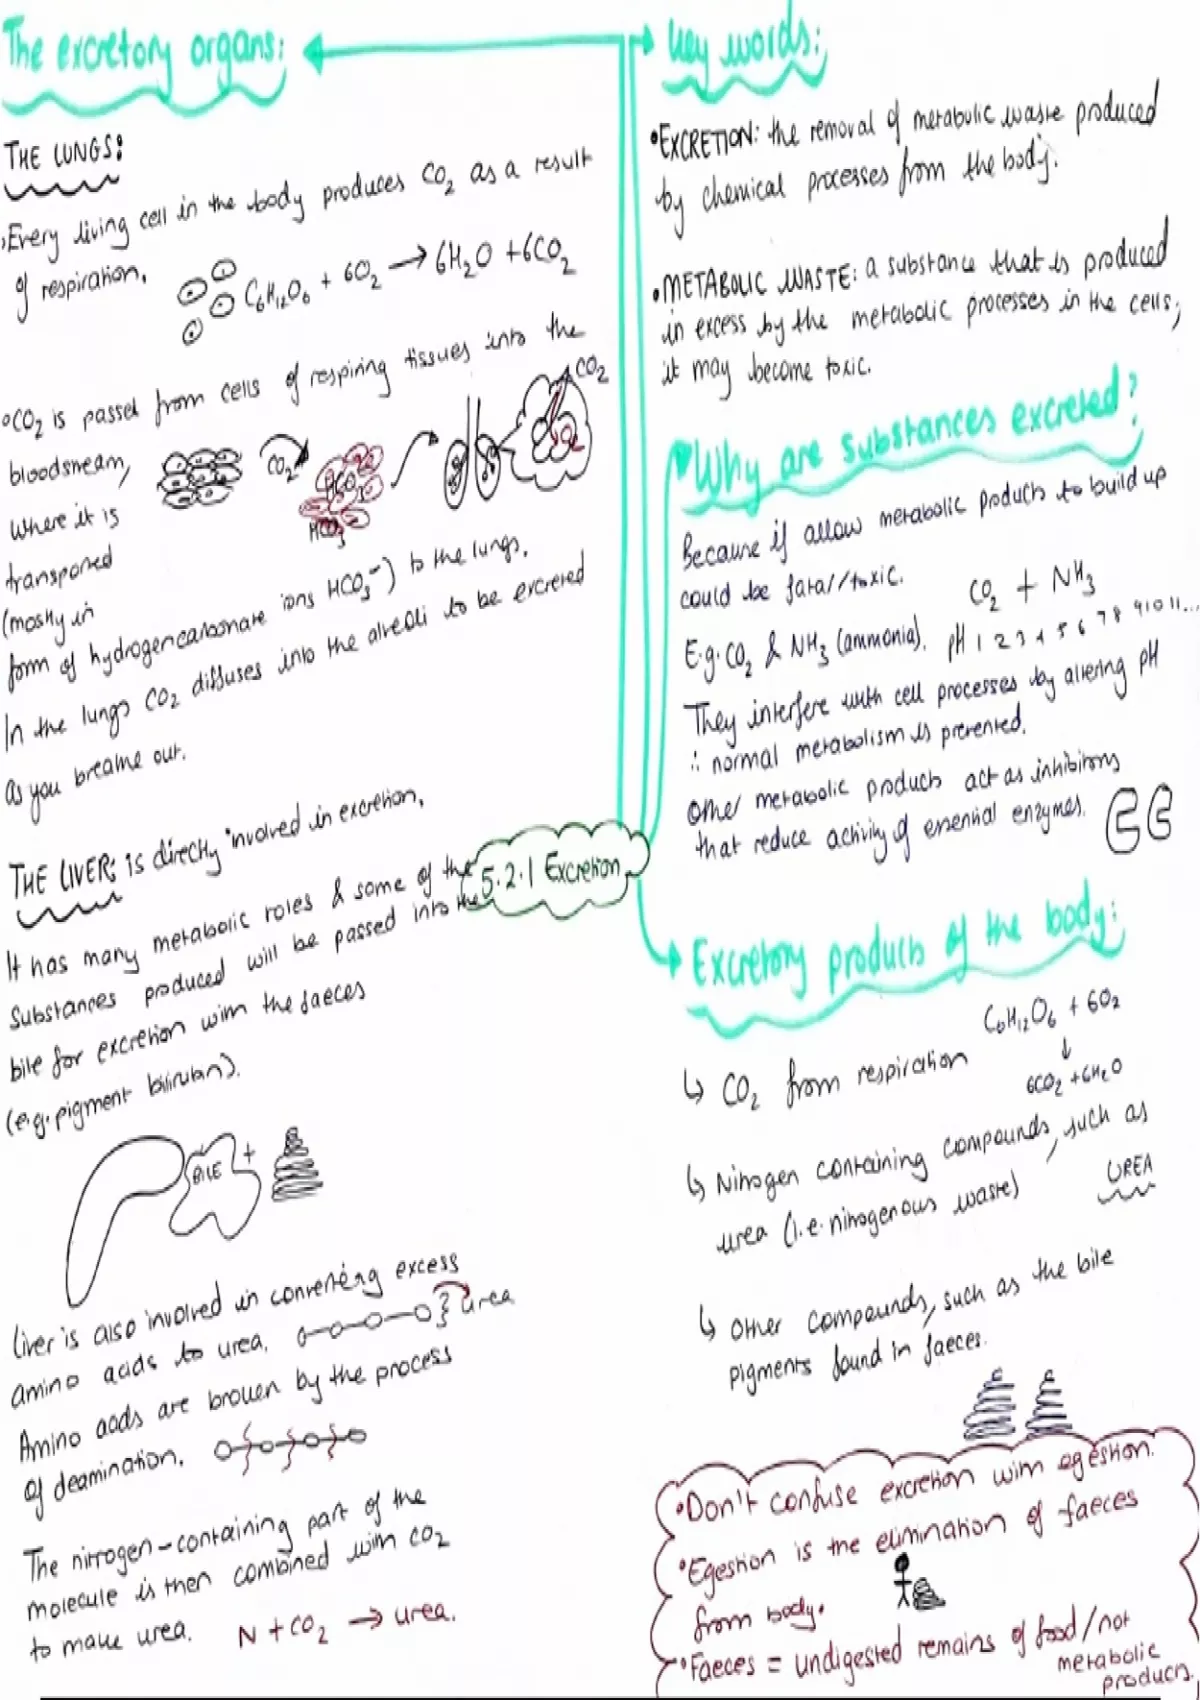 The excretory organs:
THE LUNGS:
Every living cell in the body produces CO2 as a result
of respiration.
C6H12O6 + 6O2 → 6H2O + 6CO2
CO2 is passed from cells of respiring tissues into the
bloodstream,
where it is
transported
(mostly in
form of hydrogencarbonate ions HCO3-) to the lungs.
CO2
HCO3
HCO3
CO2
O2
In the lungs CO2 diffuses into the alveoli to be excreted
as you breathe out.
THE LIVER: is directly involved in excretion.
It has many metabolic roles & some of the
substances produced will be passed into the
bile for excretion with the faeces
(e.g. pigment bilirubin).
BILE +
Liver is also involved in converting excess
amino acids to urea.
urea
Amino acids are broken by the process
of deamination.
The nitrogen-containing part of the
molecule is then combined with CO2
to make urea.
N + CO2 → urea.
5.2.1 Excretion
Key words:
•EXCRETION: the removal of metabolic waste produced
by chemical processes from the body.
•METABOLIC WASTE: a substance that is produced
in excess by the metabolic processes in the cells;
it may become toxic.
Why are substances excreted?
Because if allow metabolic products to build up
could be fatal/toxic.
CO2 + NH3
E.g. CO2 & NH3 (ammonia).
pH 1 2 3 4 5 6 7 8 9 10 11...
They interfere with cell processes by altering pH
∴ normal metabolism is prevented.
Other metabolic products act as inhibitors
that reduce activity of essential enzymes.
Excretory products of the body:
↳ CO2 from respiration
C6H12O6 + 6O2
↓
6CO2 + 6H2O
↳ Nitrogen containing compounds, such as
urea (i.e. nitrogenous waste)
UREA
↳ Other compounds, such as the bile
pigments found in faeces.
•Don't confuse excretion with egestion.
•Egestion is the elimination of faeces
from body.
•Faeces = undigested remains of food/not
metabolic
products.